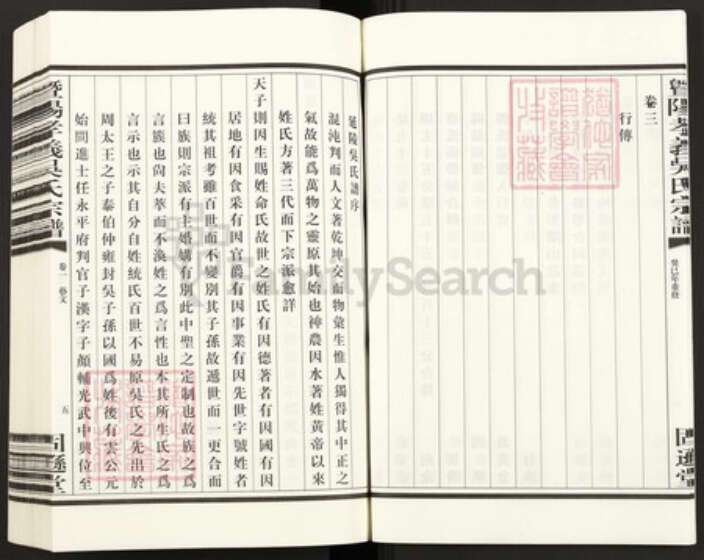 暨陽孝義吳氏宗譜
癸巳年重修
固遜堂
卷三
行傳
延陵吳氏譜序
混沌判而人文著乾坤交而物彙生惟人獨得其中正之
氣故能爲萬物之靈原其始也神農因水著姓黃帝以來
姓氏方著三代而下宗派愈詳
天子則因生賜姓命氏故世之姓氏有因德著者有因國有因
居地有因食采有因官爵有因事業有因先世字號姓者
統其祖考雖百世而不變別其子孫故遞世而一更合而
曰族則宗派有主婚媾有別此中聖之定制也故族之爲
言簇也尙夫萃而不渙姓之爲言性也本其所生氏之爲
言示也示其自分自姓統氏百世不易原吳氏之先出於
周太王之子泰伯仲雍封吳子孫以國爲姓後有雲公元
始間進士任永平府判官子漢字子顏輔光武中興位至
暨陽孝義吳氏宗譜
卷一 藝文
五
固遜堂
FamilySearch